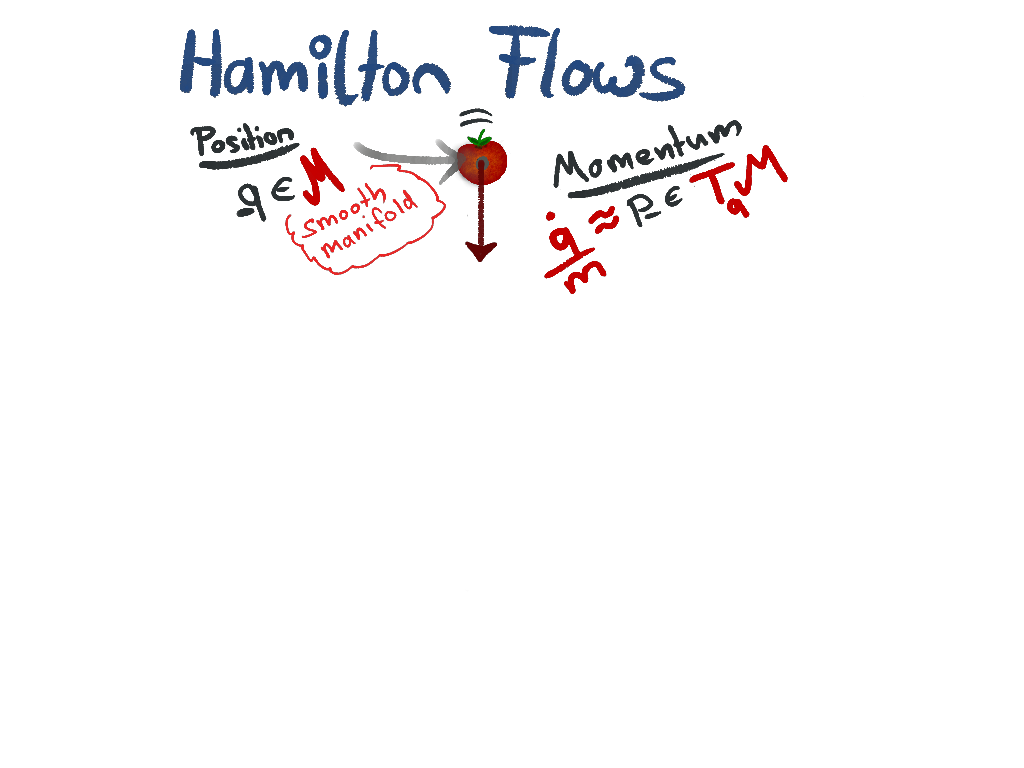 Hamilton Flows
Position
q ∈ M
smooth
manifold
Momentum
q̇/m ≈ p ∈ T_qM